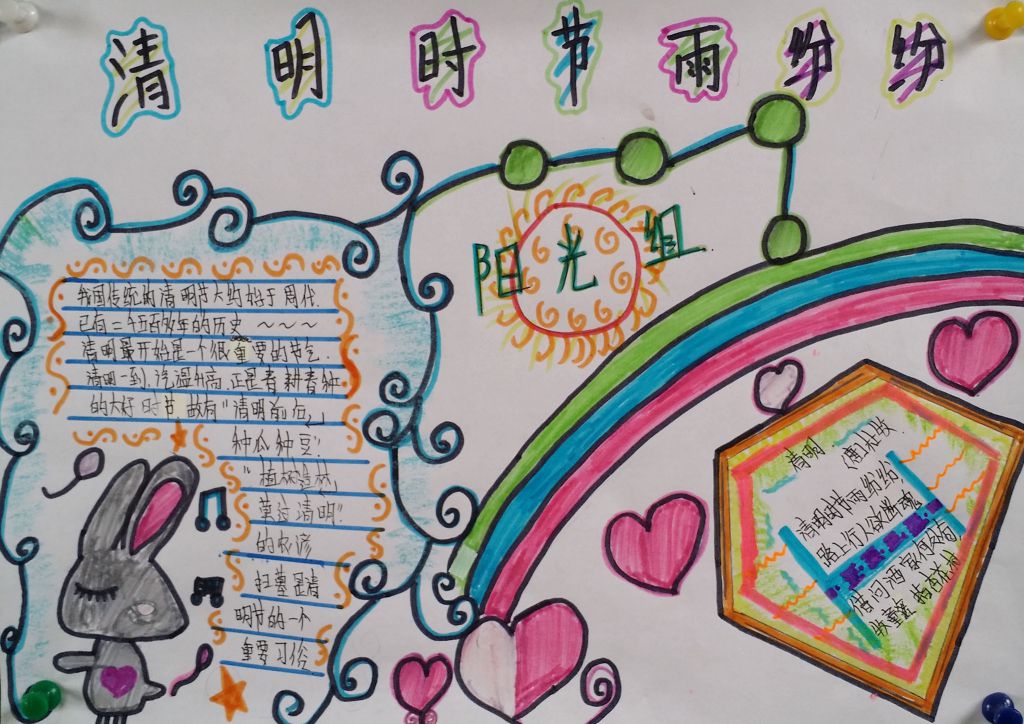 清明时节雨纷纷
阳光组
我国传统的清明节大约始于周代.
已有二千五百多年的历史 ~~~
清明最开始是一个很重要的节气.
清明一到,气温升高,正是春耕春种
的大好时节 故有"清明前后,
种瓜种豆".
"植树造林,
莫过清明".
的农谚
扫墓是清
明节的一个
重要习俗
清明 (唐)杜牧
清明时节雨纷纷,
路上行人欲断魂
借问酒家何处有
牧童遥指杏花村